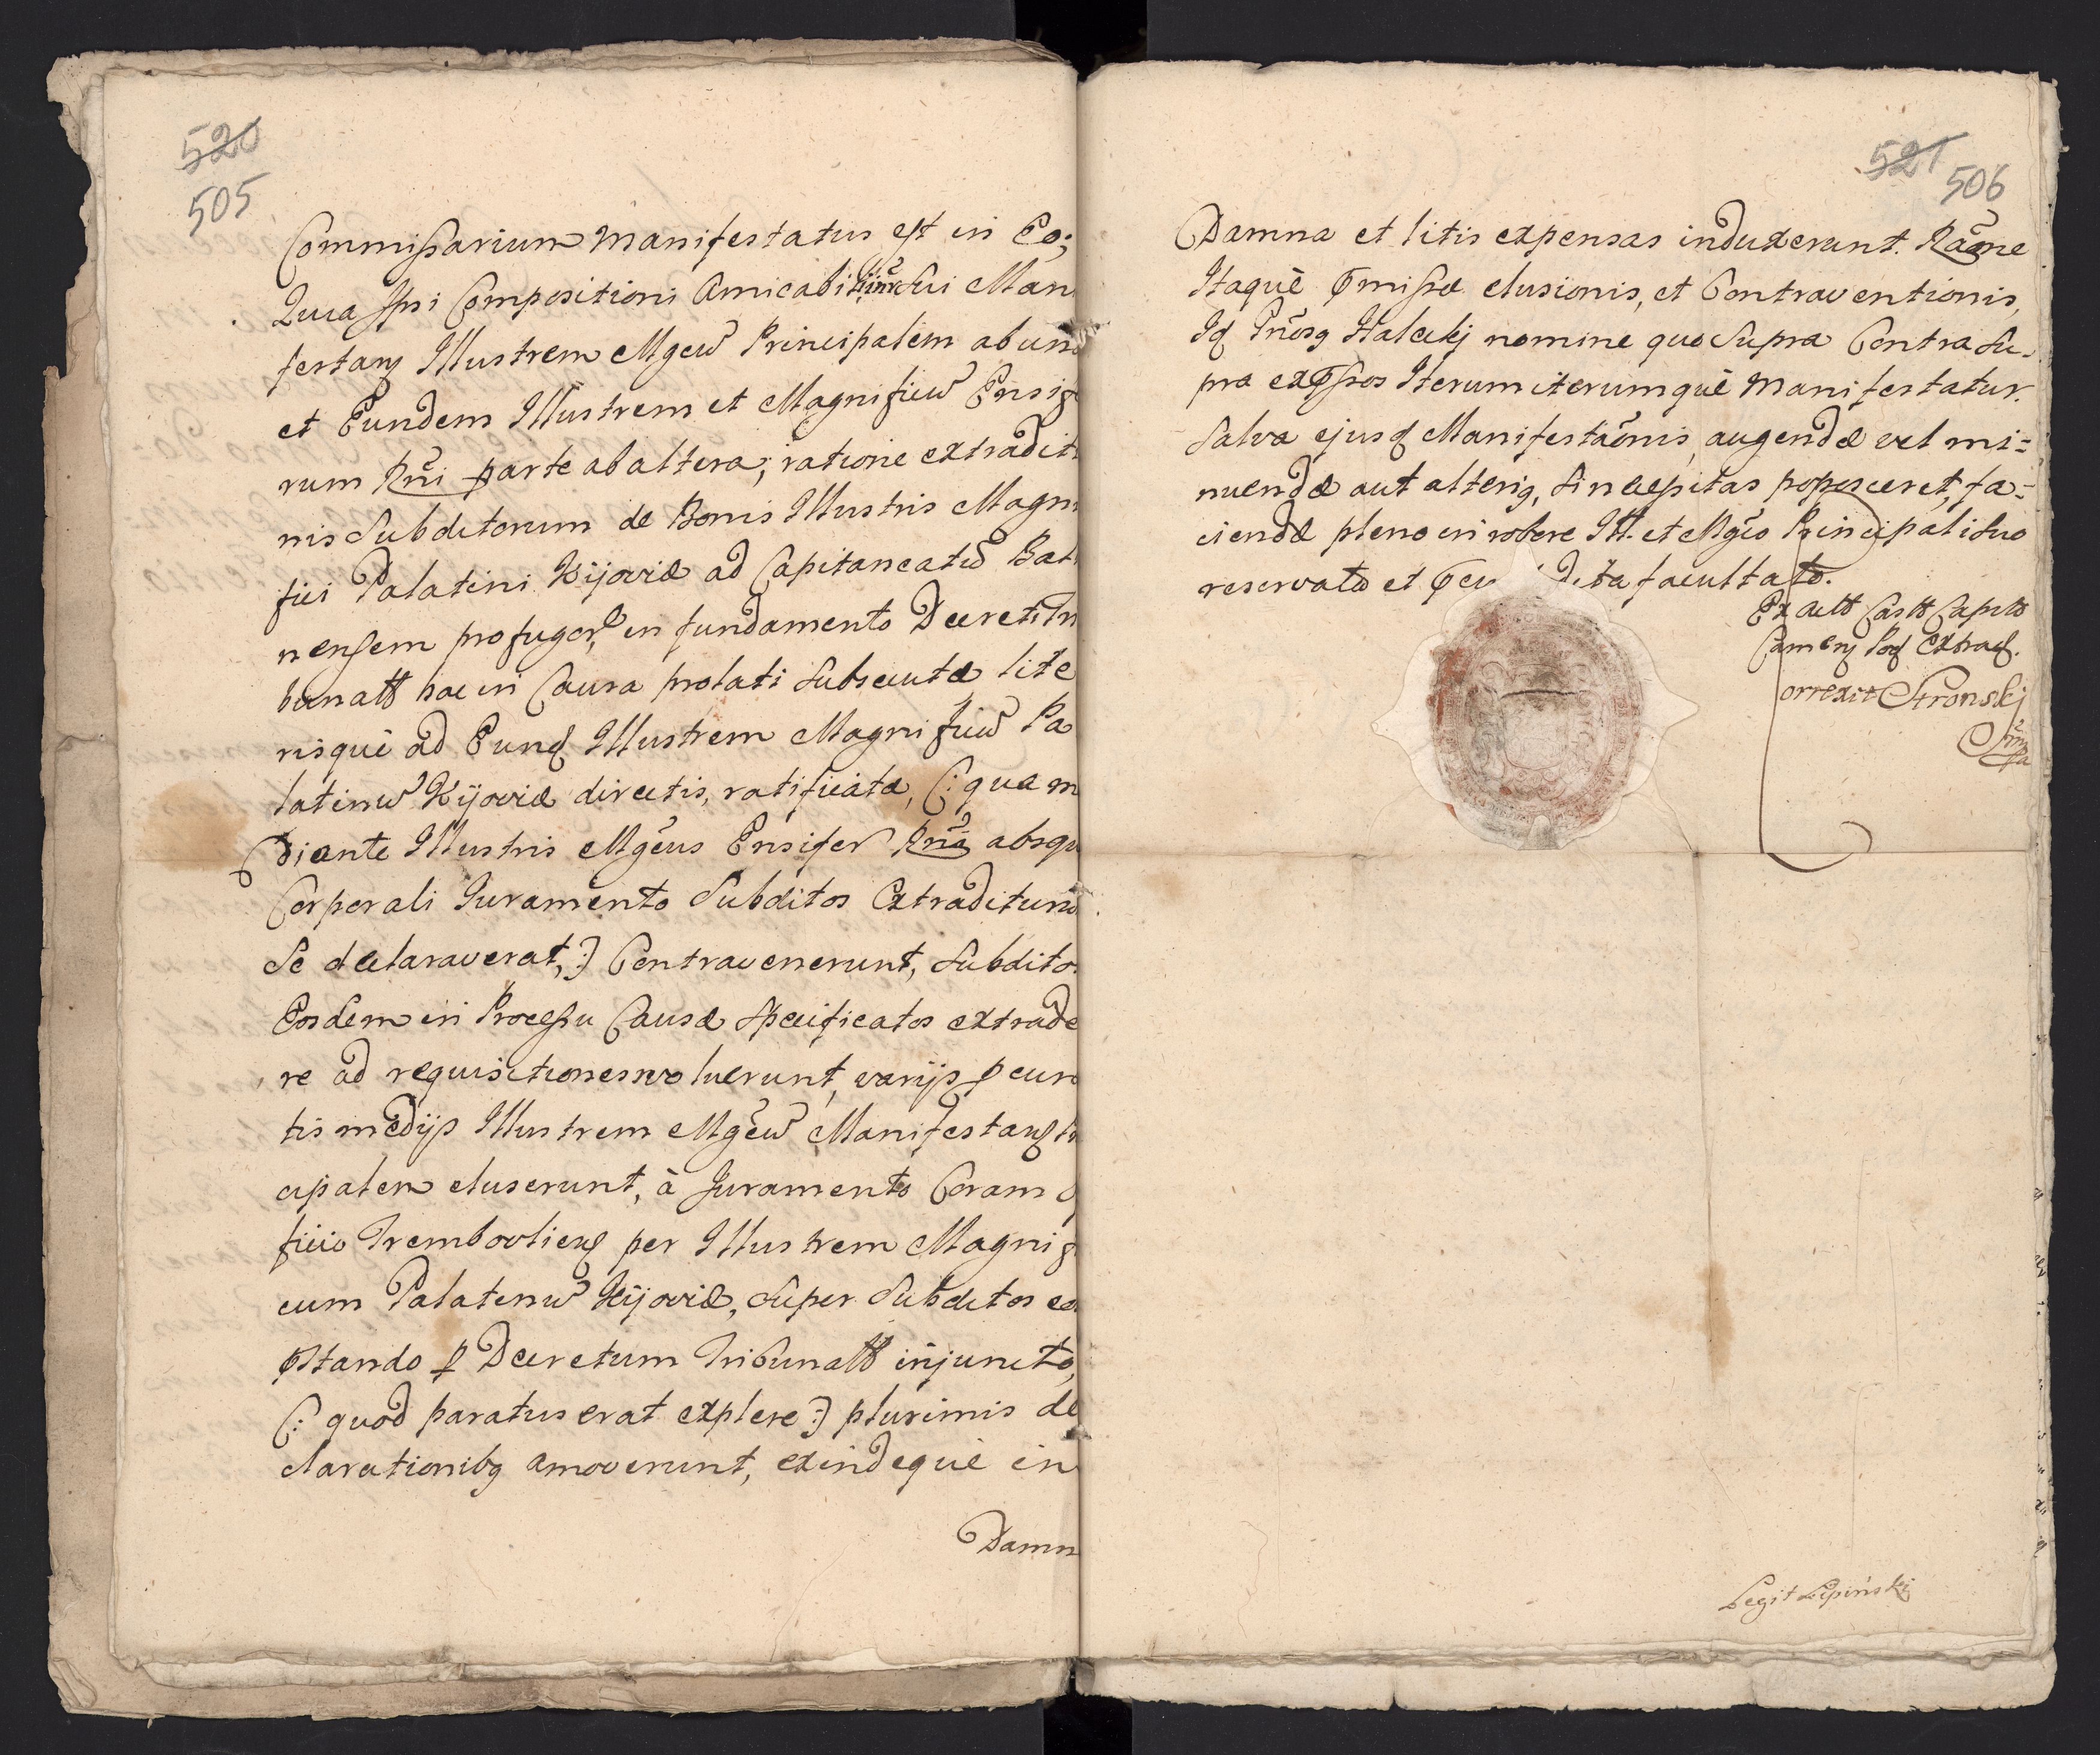 520
505
Commissarium manifestatus est in Eo;
Quia Ipsi Compositioni Amicabili inr̃ Sui Man
festanꝫ Illustrem Mgcũ Principalem ab una
et Eundem Illustrem et Magnificũ Ensife
rum Rñi parte ab altera; ratione extraditi
nis Subditorum de Bonis Illustris Magni
fici Palatini Kijoviæ ad Capitaneatũ Bat
nensem profugorũ, in fundamento Decreti Tri
bunalt hac in Causa prolati Subsecutæ lite
risquè ad Eund Illustrem Magnificũ Pa
latinũ Kijoviæ directis, ratificatæ, (: qua m
diante Illustris Mgc̃us Ensifer Rñi absqu
Corporali Juramento Subditos Extraditurũ
Se declaraverat, :) Contravenerunt, Subdito
Eosdem in Processu Causæ Specificatos extrade
re ad requisitiones noluerunt, varijs
tis medijs Illustrem Mgc̃ũ Manifestanꝫ
cipalem eluserunt, à Juramento Coram
ficio Trembovliens per Illustrem Magnif
cum Palatinũ Kijoviæ, Super Subditos eo
pstando p Decretum Tribunalt injuncto,
(: quod paratus erat explere :) plurimis de
clarationibꝫ amoverunt, exindequè in
Damn
521
506
Damna et litis expensas induxerunt. Rãone
Itaquè pmissæ elusionis, et Contraventionis,
Id Gñosꝫ Haleckj nomine quo Supra Contra Su-
pra expssos Iterum iterumquè manifestatur.
Salva ejusd Manifestãonis, augendæ vel mi-
nuendæ aut alteriꝫ, Si necessitas poposceret, fa-
ciendæ pleno in robore Ill. et Mgc̃o Principali Suo
reservata et facultate.
Ex Actt Castt Captt
Camenꝫ Pod Extrad.
Correxit Stronskj
Legit Lipiński